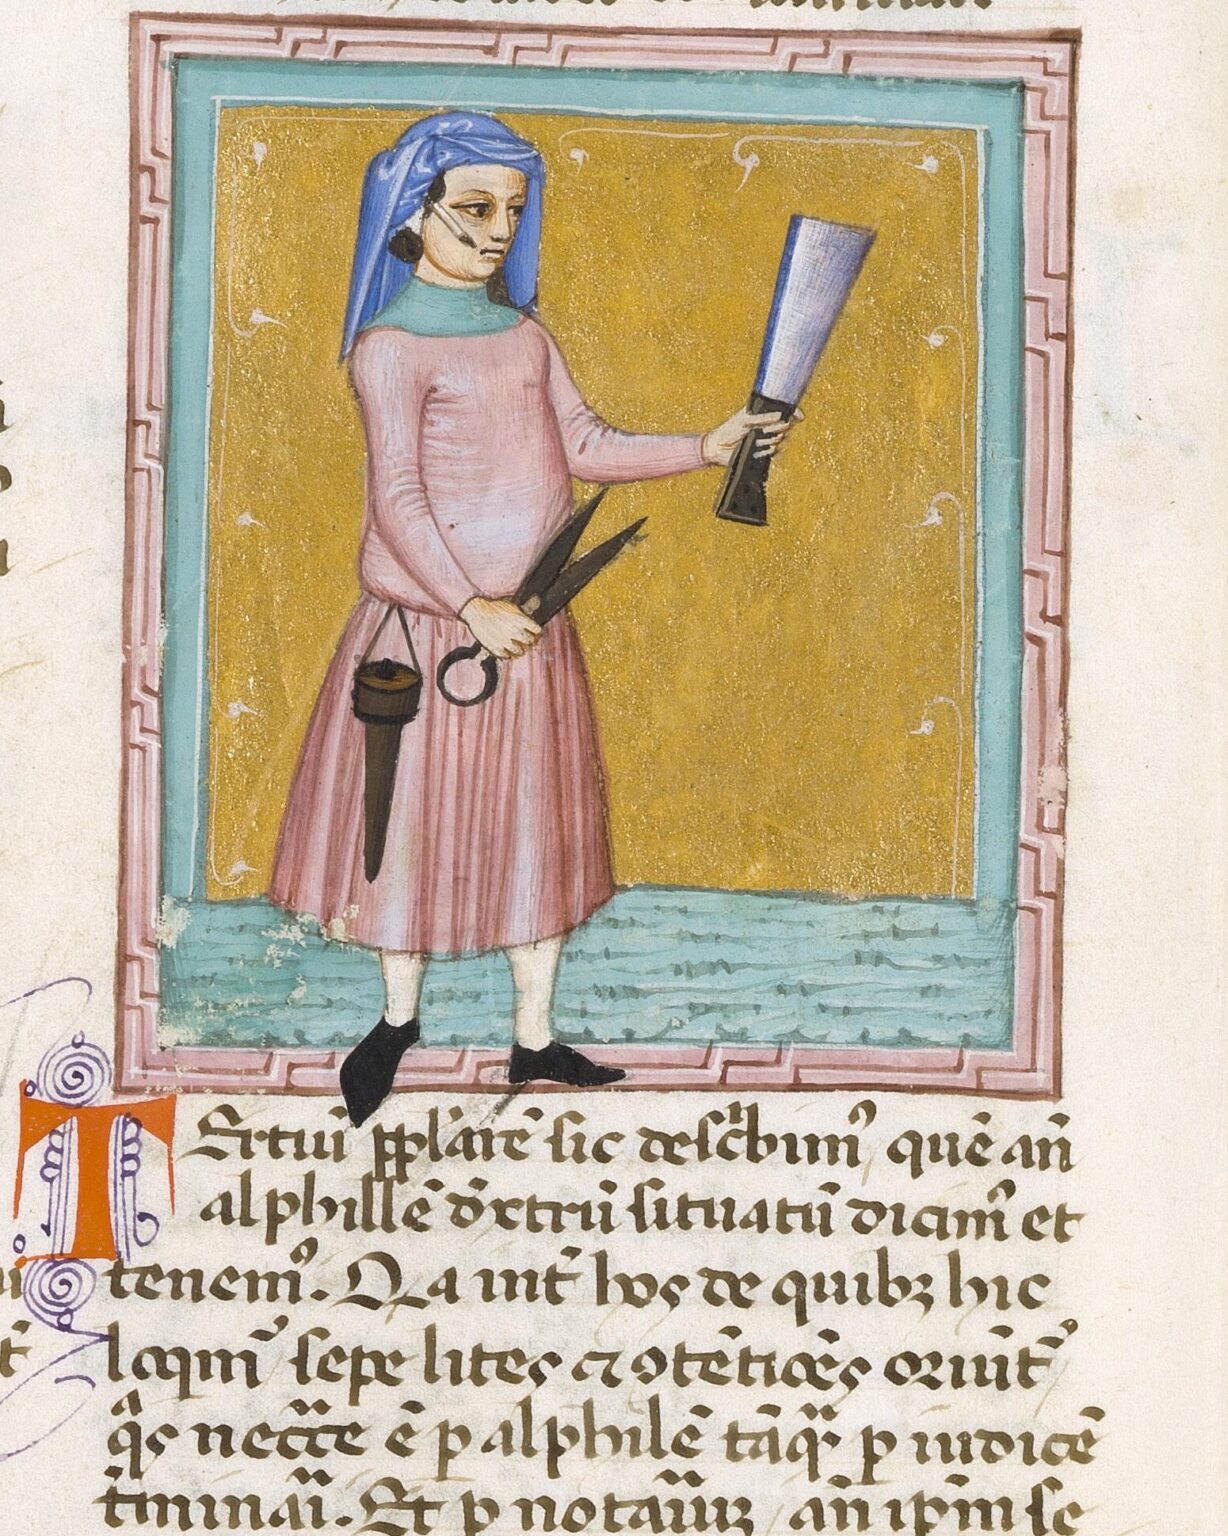 Tertiū pplarē sic descbim⁹ quē añ
alphillē dextrū situatū dicim⁹ et
tenem⁹. Qa int̄ hos de quibꝫ hic
loqim⁹ sepe lites ⁊ ꝯtētiōes oriūt᷑
q̄s necc̄e ē p alphilē tāq̄ p iudicē
t̄minaī. Et p notaūꝫ añ ip̄m se